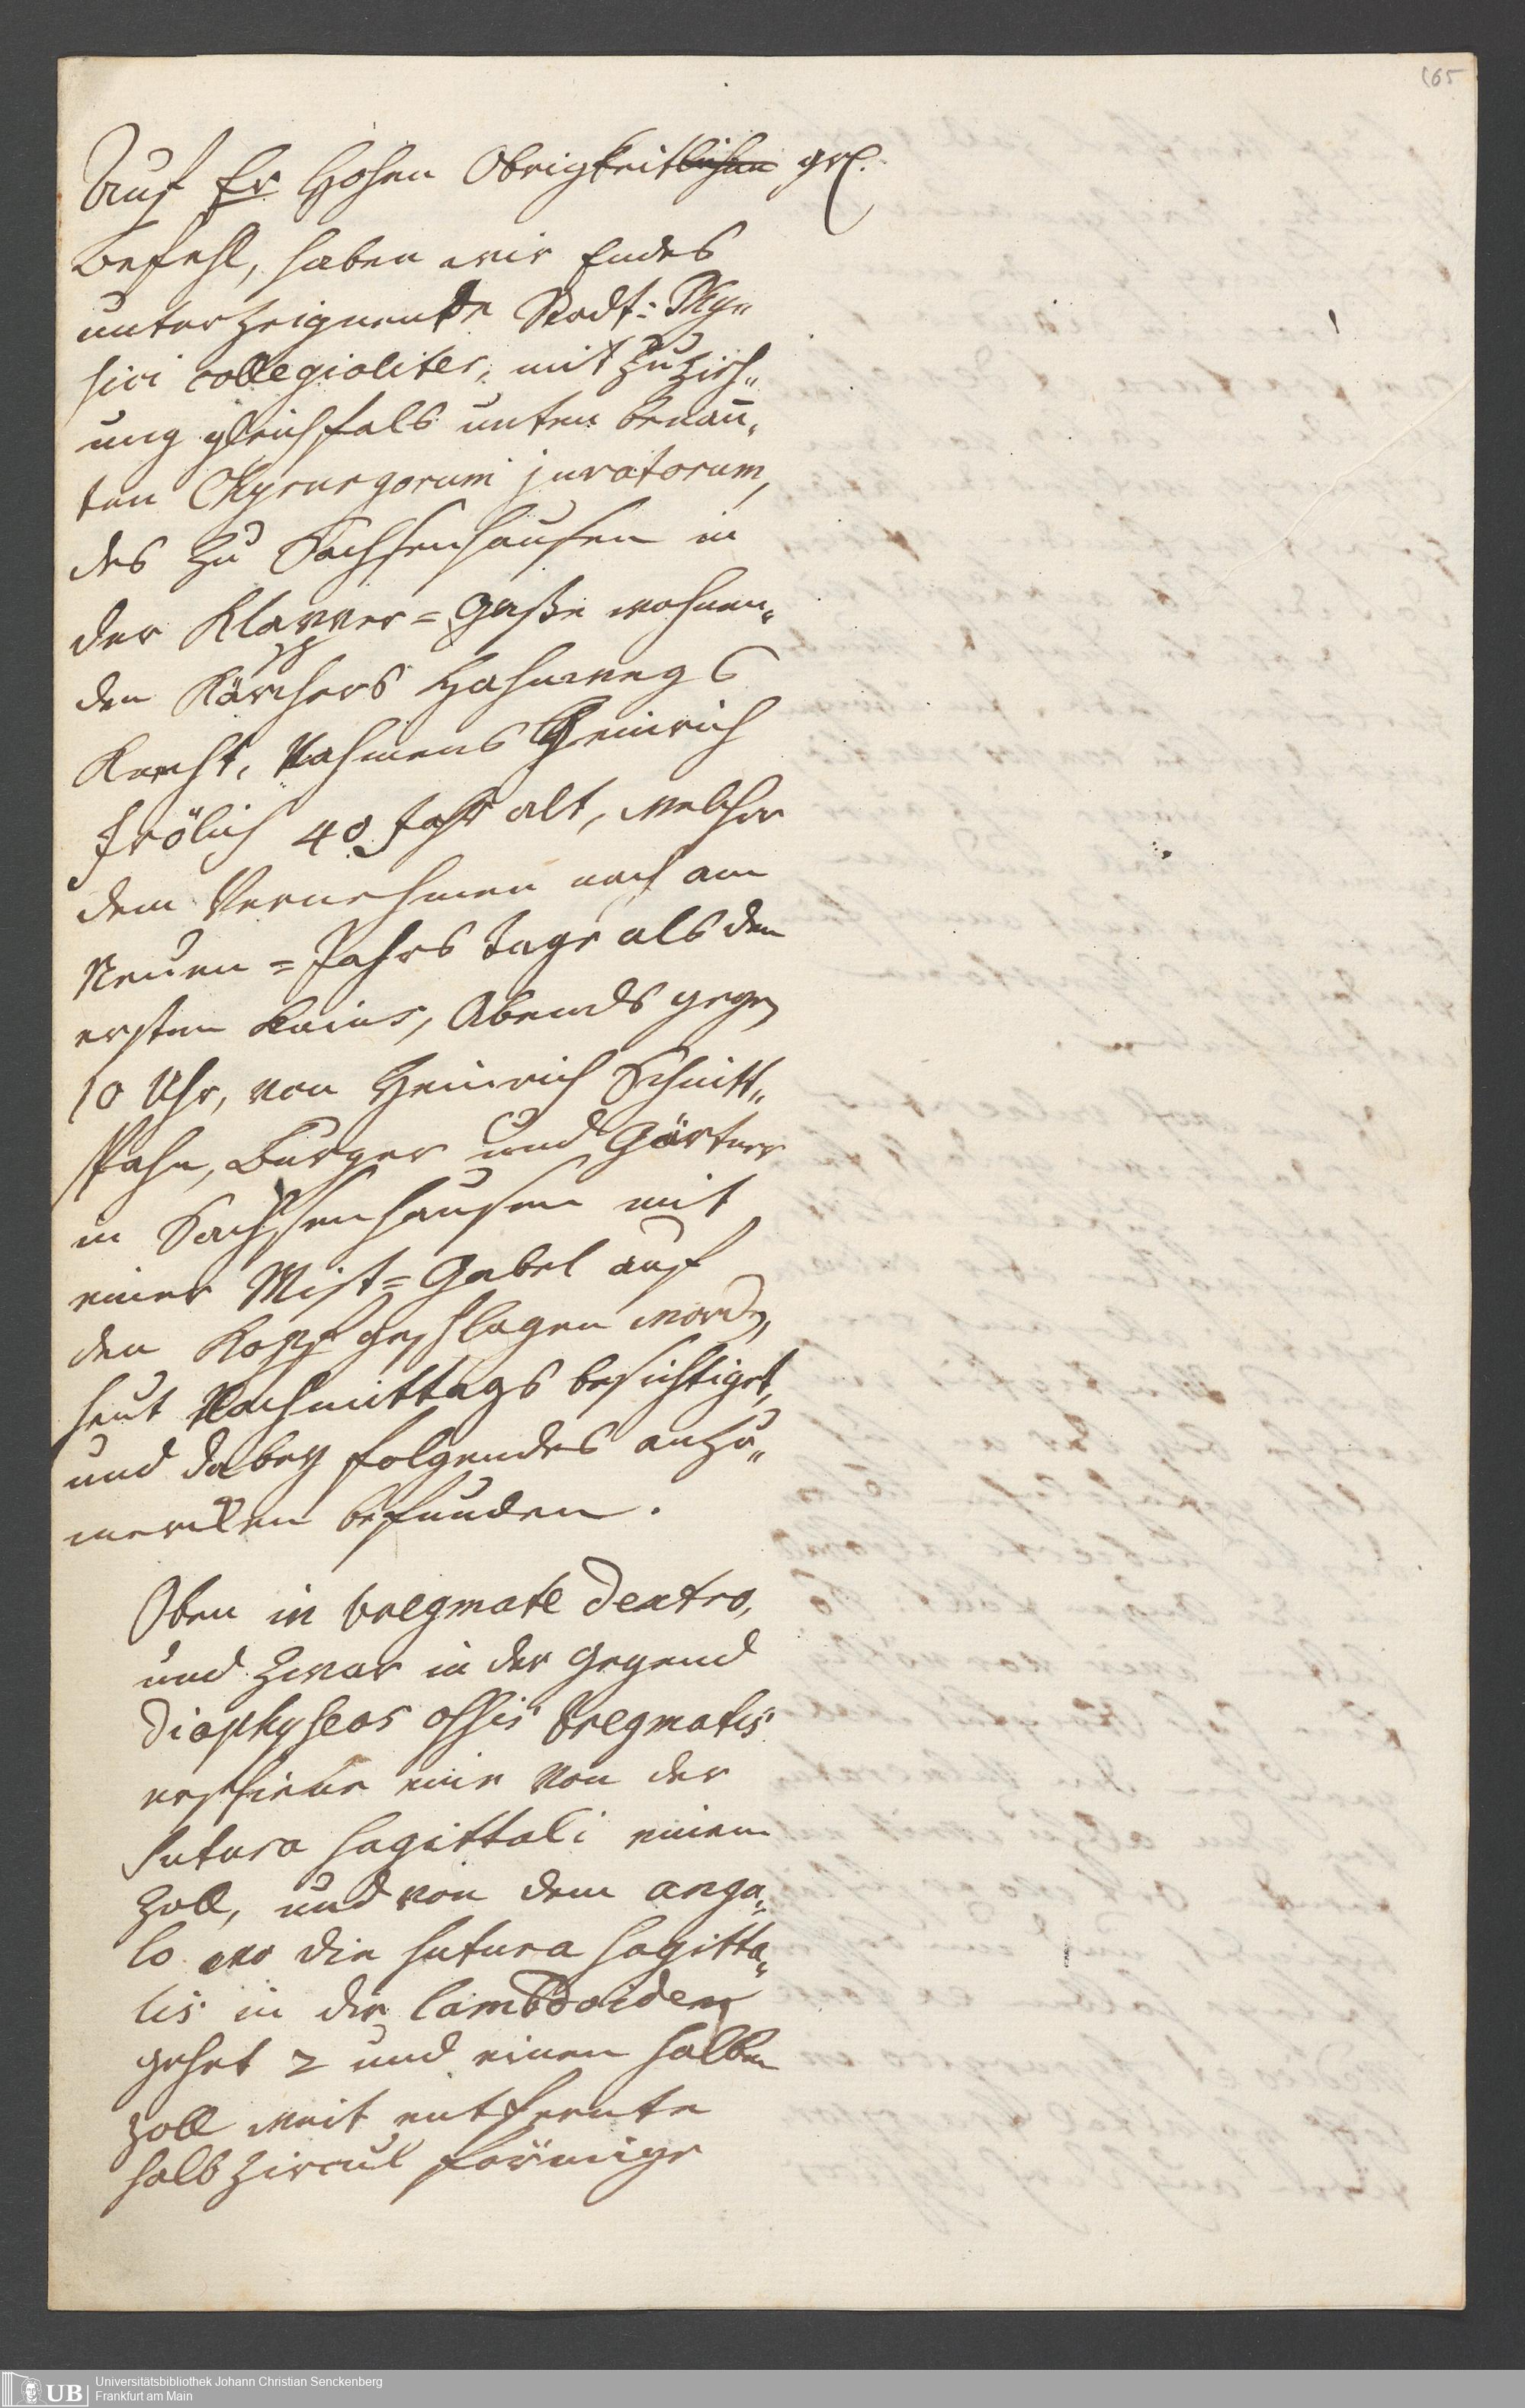 165
Auf Er Hohen Obrigkeitlichen grl.
Befehl, haben wir Endes
unterzeignente Stadt-Phy„
sici collegialiter, mit Zuzieh„
ung gleichfals unten benan̄„
ten Chyrurgorum juratorum,
des zu Sachsenhausen in
der Klapper=Gaße wohnen„
den Kärchers Hahnwegs
Knecht, Nahmens Heinrich
Frölich 40 Jahr alt, welcher
dem Vernehmen nach am
Neuen=Jahrs Tage als den
ersten huius, Abends gegen
10 Uhr, von Heinrich Schnitt„
spahn, Burger und Gärtner
in Sachsenhausen mit
einer Mist=Gabel auf
den Kopf geschlagen worden,
heut Nachmittags besichtiget,
und dabey folgendes anzu„
mercken befunden.
Oben in bregmate dextro,
und zwar in der Gegend
diaphyseos ossis bregmatis
erschiene eine von der
sutura sagittali einen
Zoll, und von dem angu„
lo wo die sutura sagitta„
lis in die lambdoidem
gehet 2 und einen halben
Zoll weit entfernte
halb Zircul förmige
Universitätsbibliothek Johann Christian Senckenberg
Frankfurt am Main
UB